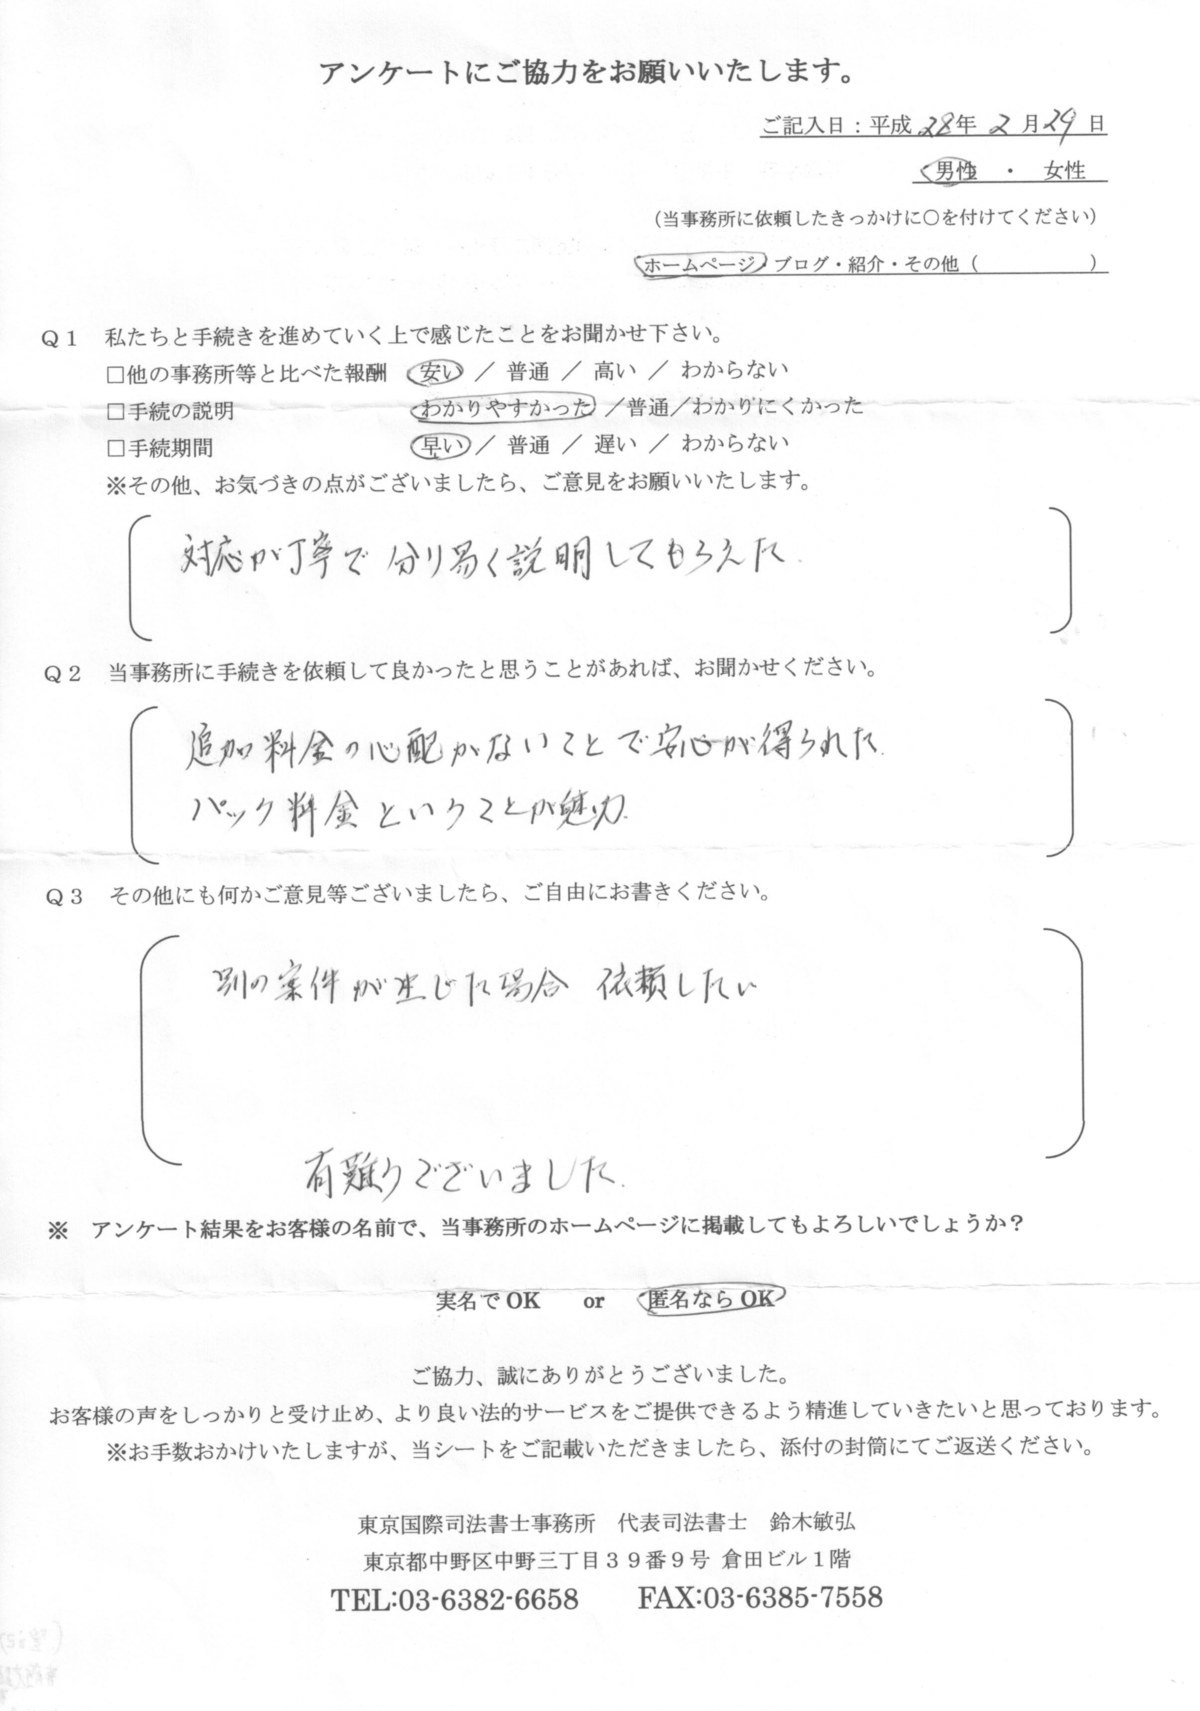 アンケートにご協力をお願いいたします。
ご記入日：平成 28年 2月29日
男性 ・ 女性
（当事務所に依頼したきっかけに〇を付けてください）
ホームページ・ブログ・紹介・その他（　　　　　）
Q1 私たちと手続きを進めていく上で感じたことをお聞かせ下さい。
□他の事務所等と比べた報酬 安い ／ 普通 ／ 高い ／ わからない
□手続の説明 わかりやすかった ／普通／わかりにくかった
□手続期間 早い ／ 普通 ／ 遅い ／ わからない
※その他、お気づきの点がございましたら、ご意見をお願いいたします。
対応が丁寧で 分り易く説明してもらえた.
Q2 当事務所に手続きを依頼して良かったと思うことがあれば、お聞かせください。
追加料金の心配がないことで安心が得られた.
パック料金ということが魅力.
Q3 その他にも何かご意見等ございましたら、ご自由にお書きください。
別の案件が生じた場合 依頼したい
有難うございました.
※ アンケート結果をお客様の名前で、当事務所のホームページに掲載してもよろしいでしょうか？
実名でOK or 匿名ならOK
ご協力、誠にありがとうございました。
お客様の声をしっかりと受け止め、より良い法的サービスをご提供できるよう精進していきたいと思っております。
※お手数おかけいたしますが、当シートをご記載いただきましたら、添付の封筒にてご返送ください。
東京国際司法書士事務所 代表司法書士 鈴木敏弘
東京都中野区中野三丁目３９番９号 倉田ビル１階
TEL:03-6382-6658 FAX:03-6385-7558